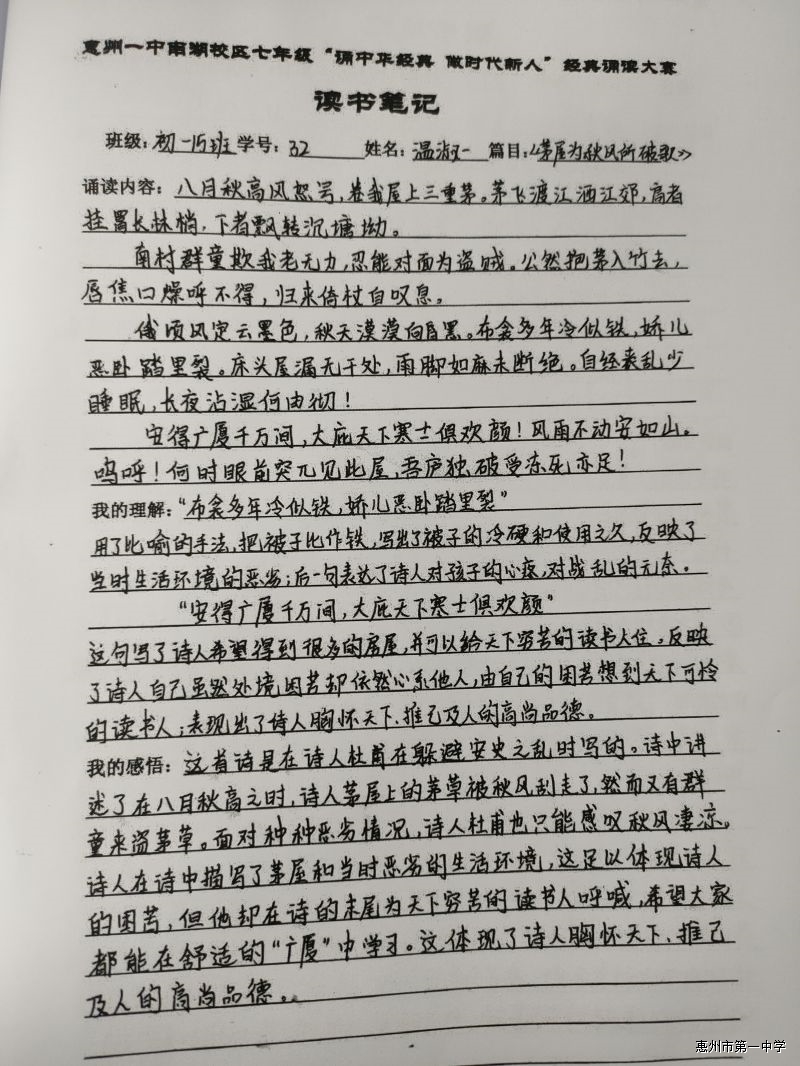 惠州一中南湖校区七年级“诵中华经典 做时代新人”经典诵读大赛
读书笔记
班级:初一15班 学号:32 姓名:温淑一 篇目:《茅屋为秋风所破歌》
诵读内容:八月秋高风怒号,卷我屋上三重茅。茅飞渡江洒江郊,高者
挂罥长林梢,下者飘转沉塘坳。
南村群童欺我老无力,忍能对面为盗贼。公然抱茅入竹去,
唇焦口燥呼不得,归来倚杖自叹息。
俄顷风定云墨色,秋天漠漠向昏黑。布衾多年冷似铁,娇儿
恶卧踏里裂。床头屋漏无干处,雨脚如麻未断绝。自经丧乱少
睡眠,长夜沾湿何由彻!
安得广厦千万间,大庇天下寒士俱欢颜!风雨不动安如山。
呜呼!何时眼前突兀见此屋,吾庐独破受冻死亦足!
我的理解:“布衾多年冷似铁,娇儿恶卧踏里裂”
用了比喻的手法,把被子比作铁,写出了被子的冷硬和使用之久,反映了
当时生活环境的恶劣;后一句表达了诗人对孩子的心疼,对战乱的无奈。
“安得广厦千万间,大庇天下寒士俱欢颜”
这句写了诗人希望得到很多的房屋,并可以给天下穷苦的读书人住。反映
了诗人自己虽然处境困苦却依然心系他人,由自己的困苦想到天下可怜
的读书人;表现出了诗人胸怀天下、推己及人的高尚品德。
我的感悟:这首诗是在诗人杜甫在躲避安史之乱时写的。诗中讲
述了在八月秋高之时,诗人茅屋上的茅草被秋风刮走了,然而又有群
童来盗茅草。面对种种恶劣情况,诗人杜甫也只能感叹秋风凄凉。
诗人在诗中描写了茅屋和当时恶劣的生活环境,这足以体现诗人
的困苦,但他却在诗的末尾为天下穷苦的读书人呼喊,希望大家
都能在舒适的“广厦”中学习。这体现了诗人胸怀天下、推己
及人的高尚品德。
惠州市第一中学